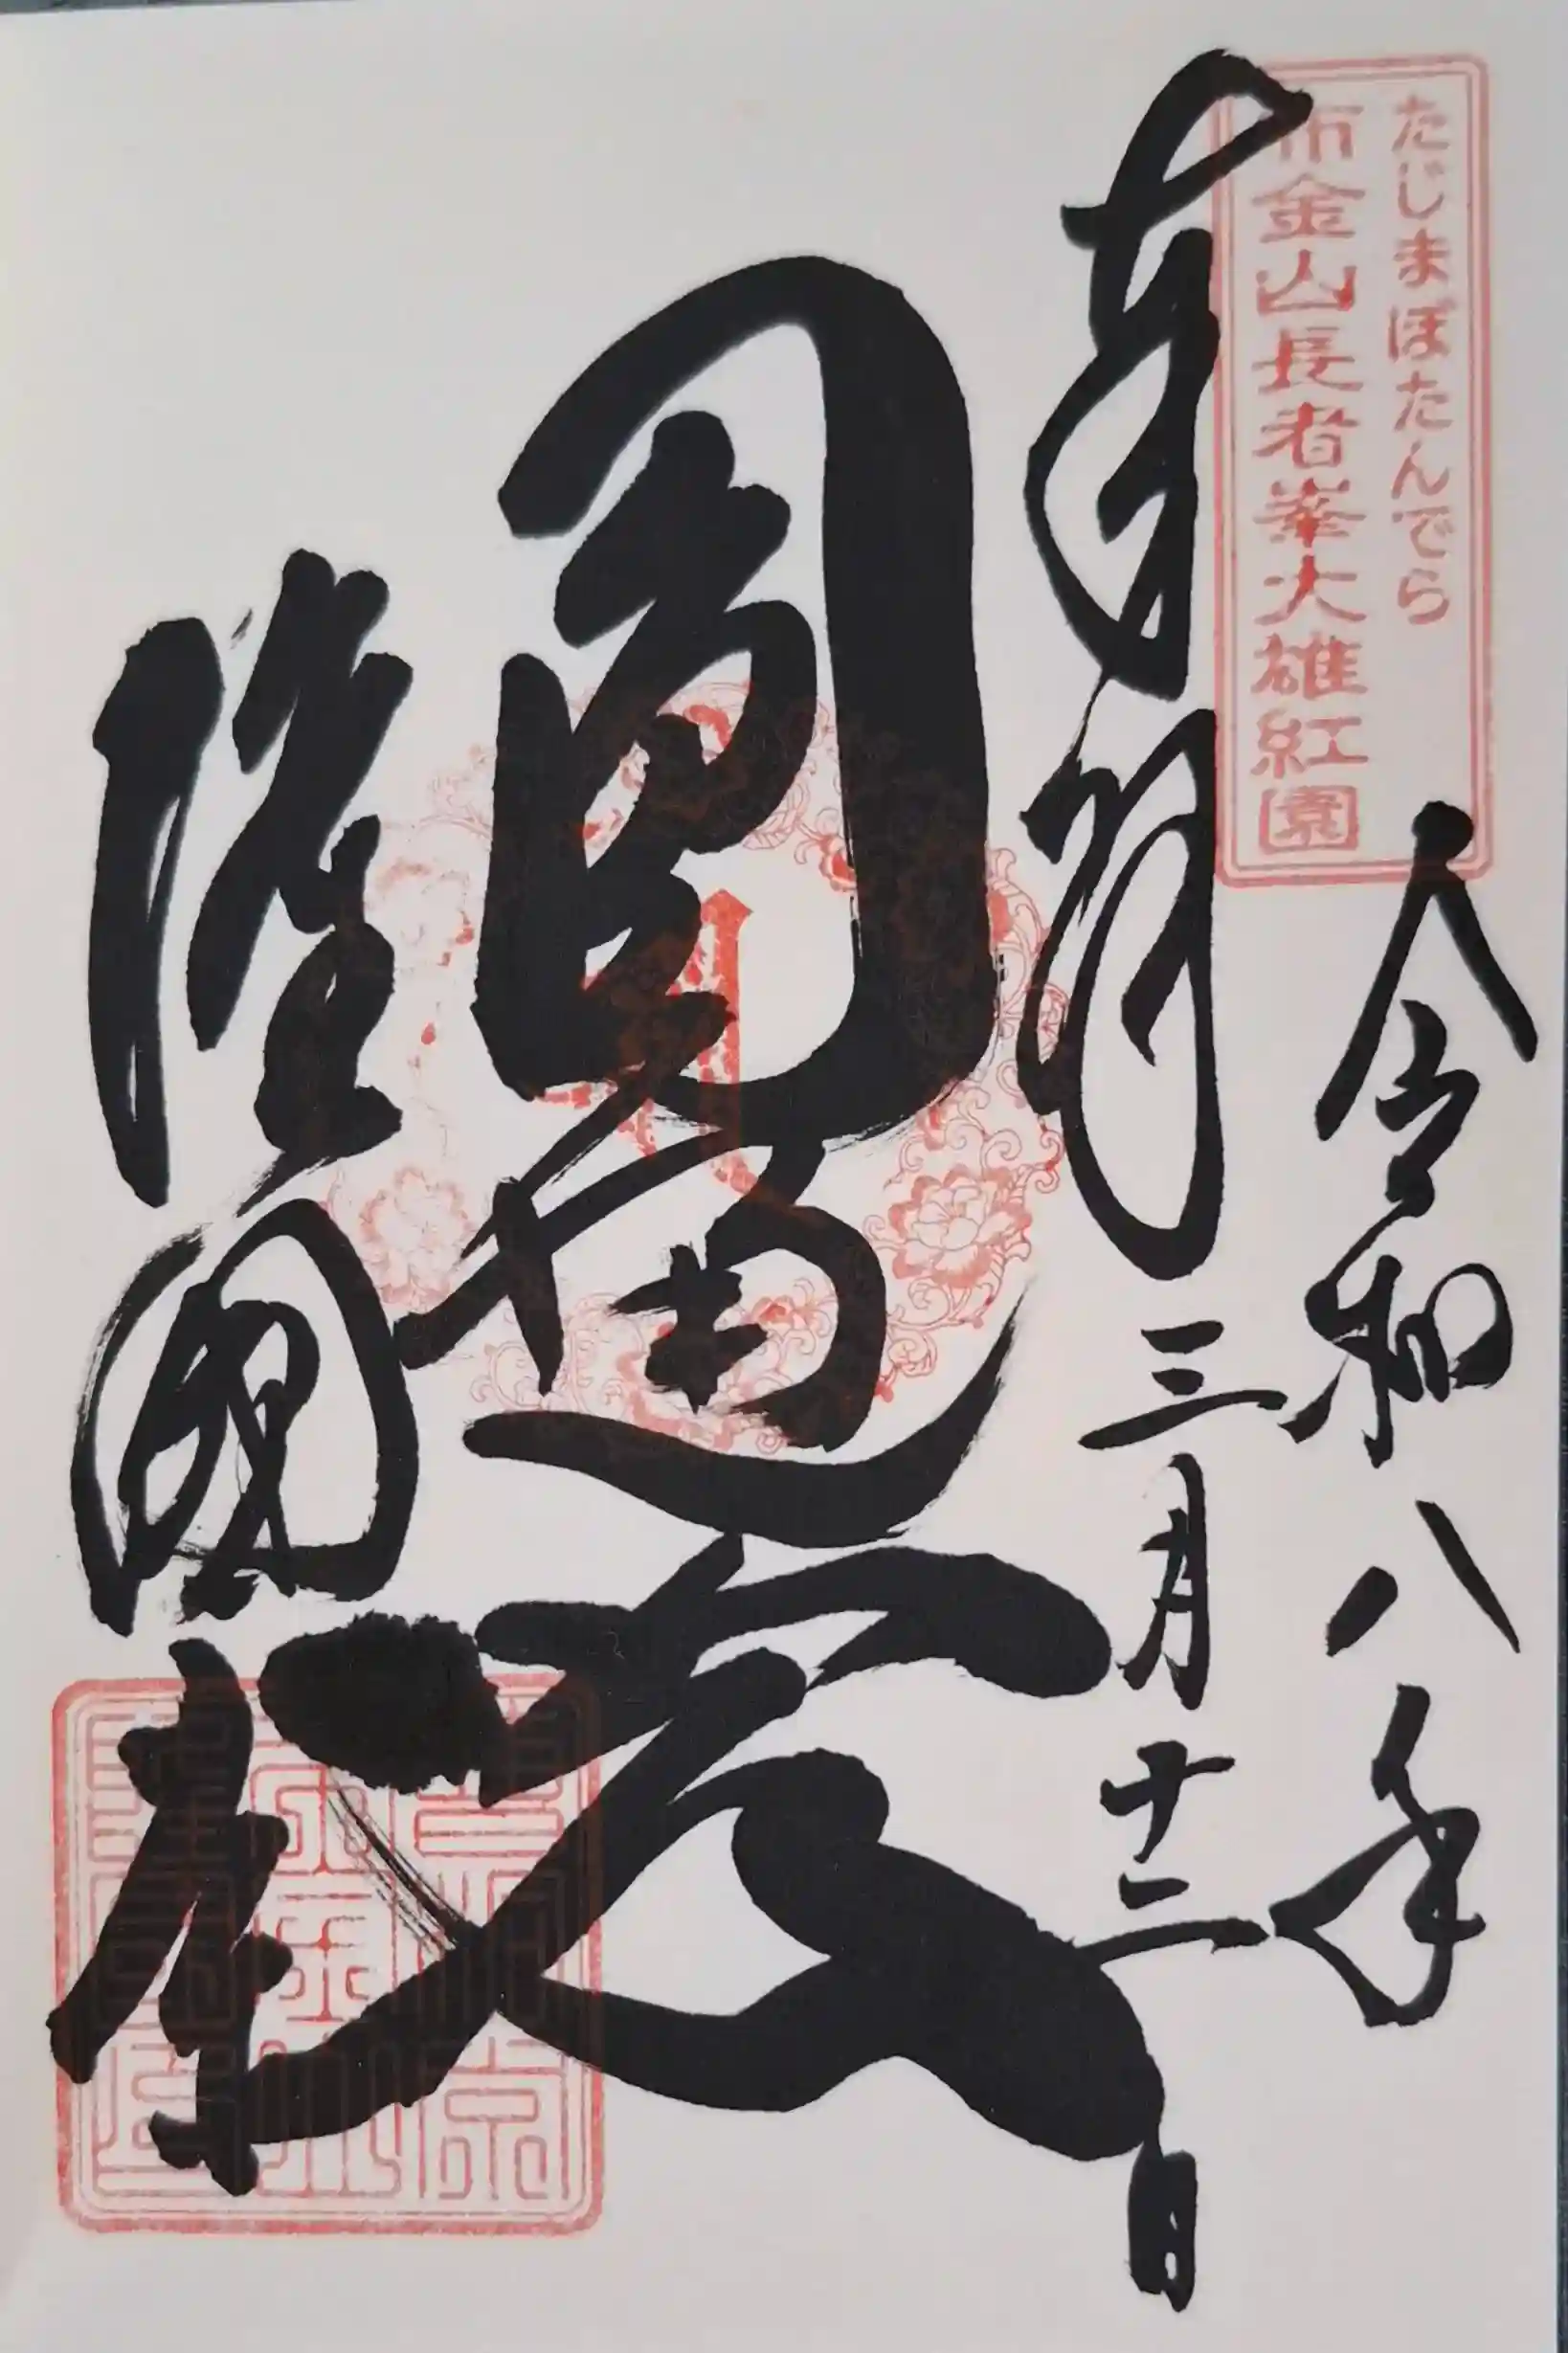 たじまぼたんでら
布金山長者峯大雄紅園
令和八年
奉拝
三月十二日
圓通殿
隆國寺